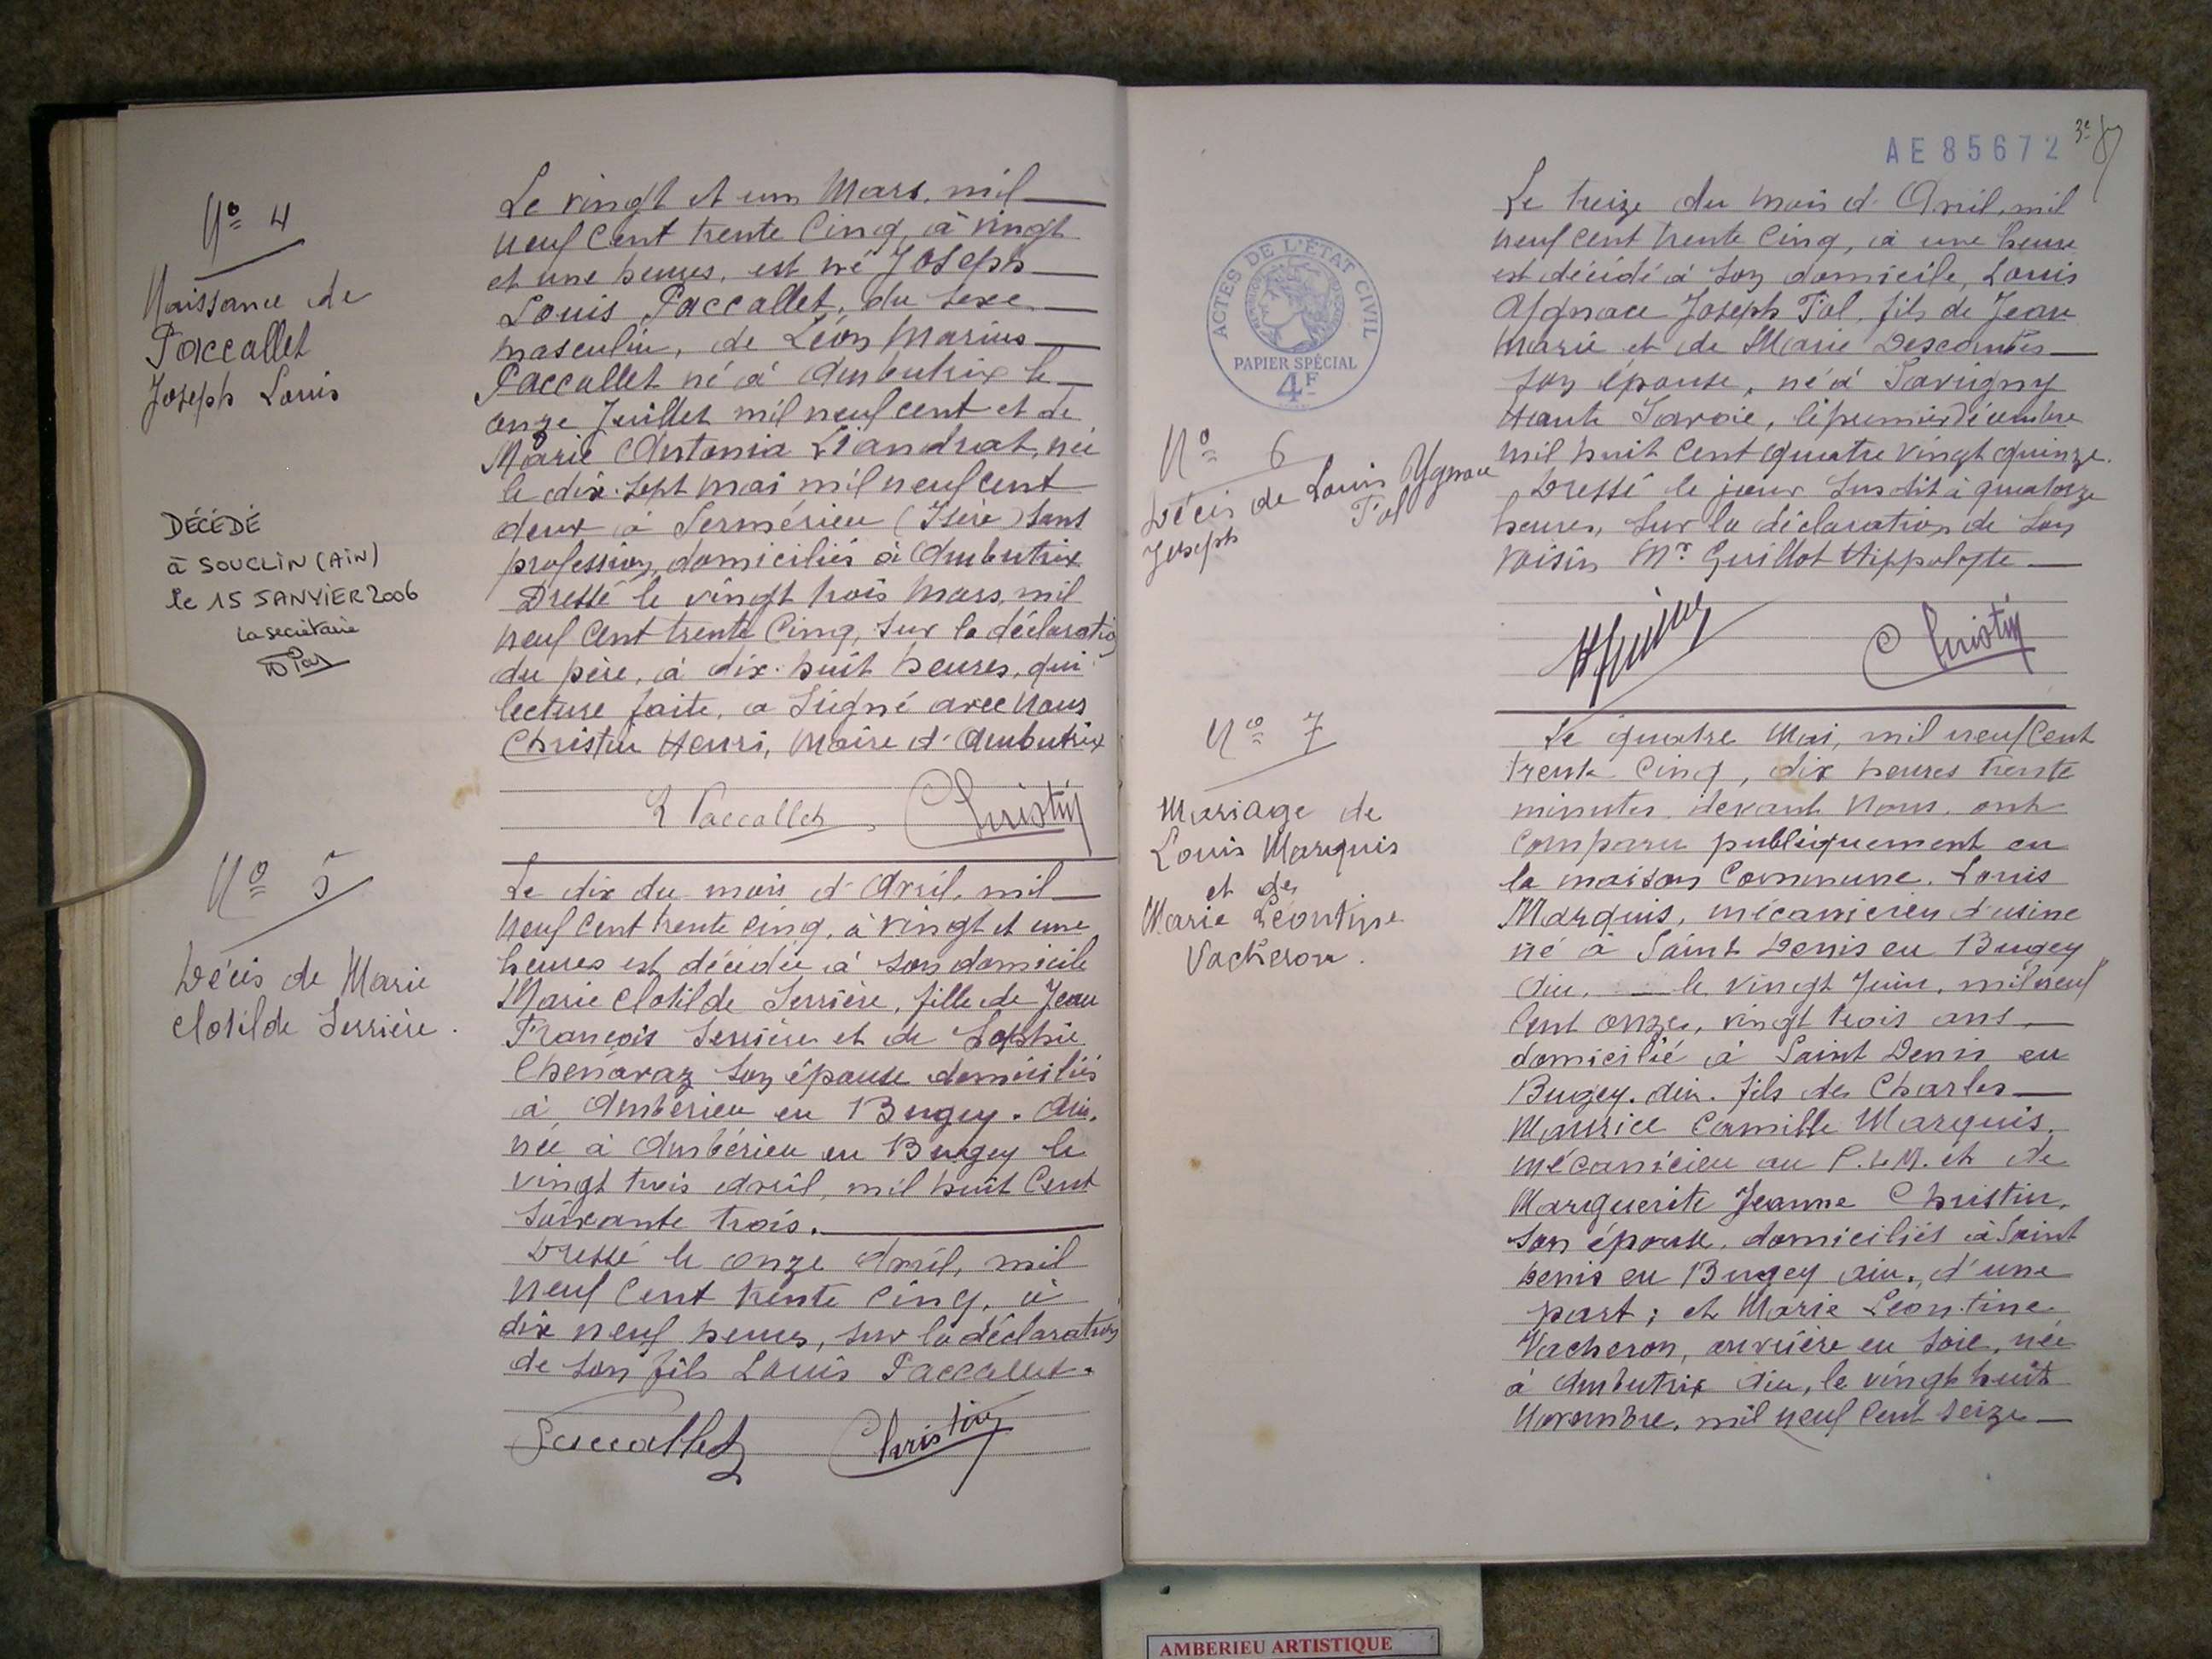 Nº 4
Naissance de
Paccallet
Joseph Louis
DÉCÉDÉ
à SOUCLIN (AIN)
le 15 JANVIER 2006
La secrétaire
Le vingt et un Mars, mil
neuf Cent trente Cinq, à vingt
et une heures, est né Joseph
Louis Paccallet, du sexe
masculin, de Léon Marius
Paccallet né à Ambutrix le
onze Juillet mil neuf cent et de
Marie Antonia Liandrat, née
le dix-sept mai mil neuf cent
deux à Sermérieu (Isère) sans
profession, domiciliés à Ambutrix
Dressé le vingt trois Mars, mil
neuf Cent trente Cinq, sur la déclaration
du père, à dix-huit heures, qui
lecture faite, a signé avec Nous
Christin Henri, Maire d'Ambutrix
L Paccallet Christin
Nº 5
Décès de Marie
Clotilde Serrière.
Le dix du mois d'Avril, mil
neuf Cent trente cinq, à vingt et une
heures est décédée à son domicile
Marie Clotilde Serrière, fille de Jean
François Serrière et de Sophie
Chenavaz son épouse domiciliés
à Ambérieu en Bugey. Ain.
née à Ambérieu en Bugey le
vingt trois Avril, mil huit Cent
soixante trois.
Dressé le onze Avril, mil
neuf Cent trente Cinq, à
dix neuf heures, sur la déclaration
de son fils Louis Paccallet.
Paccallet Christin
AE 85672
3e
ACTES DE L'ÉTAT CIVIL
PAPIER SPÉCIAL
4F
Nº 6
Décès de Louis Ygnace
Joseph Fol
Le treize du mois d'Avril, mil
neuf cent trente Cinq, à une heure
est décédé à son domicile, Louis
Ygnace Joseph Fol, fils de Jean
Marie et de Marie Descombes
son épouse, né à Savigny
Haute Savoie, le premier décembre
mil huit Cent quatre vingt quinze.
Dressé le jour susdit à quatorze
heures, sur la déclaration de son
voisin Mr Guillot Hippolyte
Christin
Nº 7
Mariage de
Louis Marquis
et de
Marie Léontine
Vacheron.
Le quatre Mai, mil neuf Cent
trente Cinq, dix heures trente
minutes, devant Nous, ont
Comparu publiquement en
la maison Commune, Louis
Marquis, mécanicien d'usine
né à Saint Denis en Bugey
Ain, le vingt Juin, mil neuf
Cent onze, vingt trois ans,
domicilié à Saint Denis en
Bugey. Ain. fils de Charles
Maurice Camille Marquis,
mécanicien au P.L.M. et de
Marguerite Jeanne Christin,
son épouse, domiciliés à Saint
Denis en Bugey Ain, d'une
part; et Marie Léontine
Vacheron, ouvrière en soie, née
à Ambutrix Ain, le vingt huit
Novembre, mil neuf Cent seize
AMBERIEU ARTISTIQUE